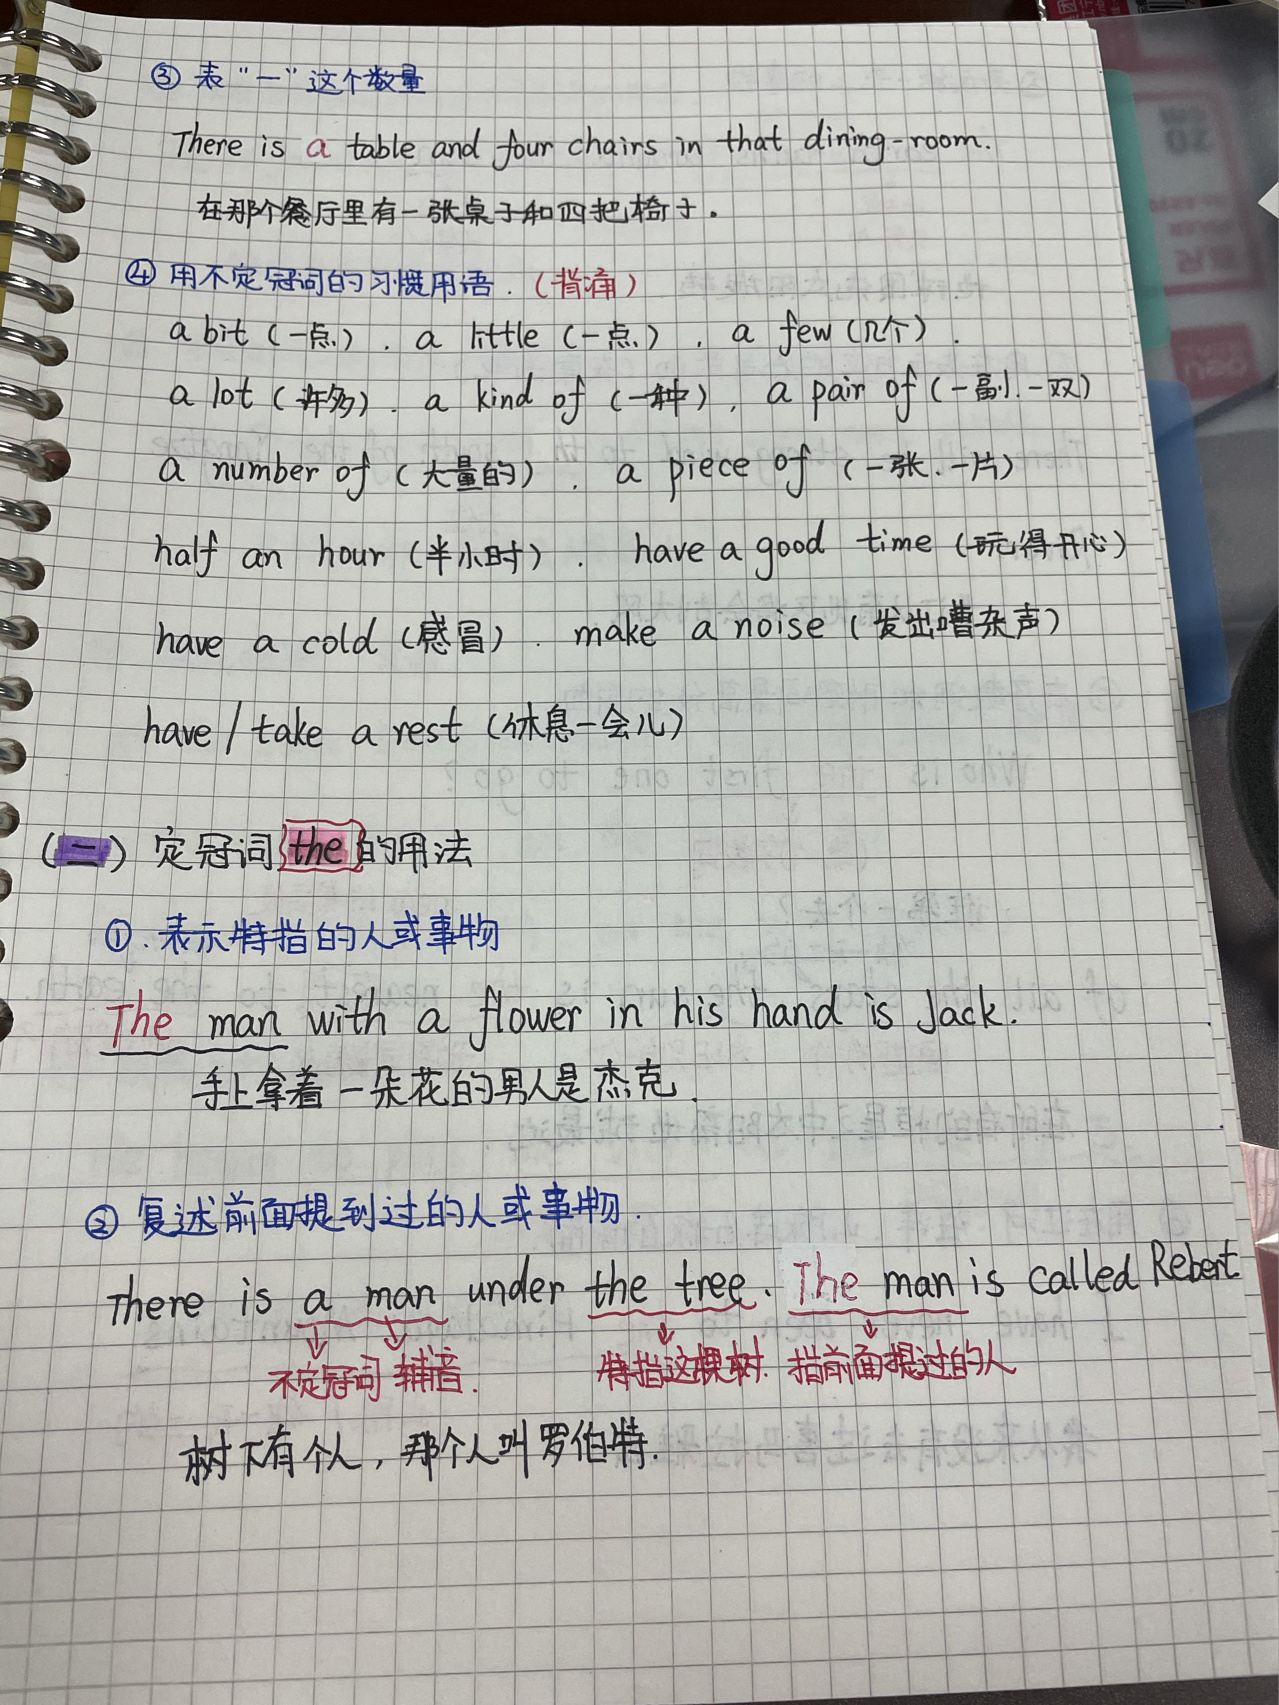 ③ 表“一”这个数量
There is a table and four chairs in that dining-room.
在那个餐厅里有一张桌子和四把椅子.
④ 用不定冠词的习惯用语.(背诵)
a bit (一点). a little (一点), a few (几个).
a lot (许多). a kind of (一种), a pair of (一副.一双)
a number of (大量的). a piece of (一张.一片)
half an hour (半小时). have a good time (玩得开心)
have a cold (感冒). make a noise (发出嘈杂声)
have / take a rest (休息一会儿)
(二) 定冠词 the 的用法
①.表示特指的人或事物
The man with a flower in his hand is Jack.
手上拿着一朵花的男人是杰克.
② 复述前面提到过的人或事物.
There is a man under the tree. The man is called Rebert
不定冠词 辅音. 特指这棵树. 指前面提过的人
树下有个人, 那个人叫罗伯特.